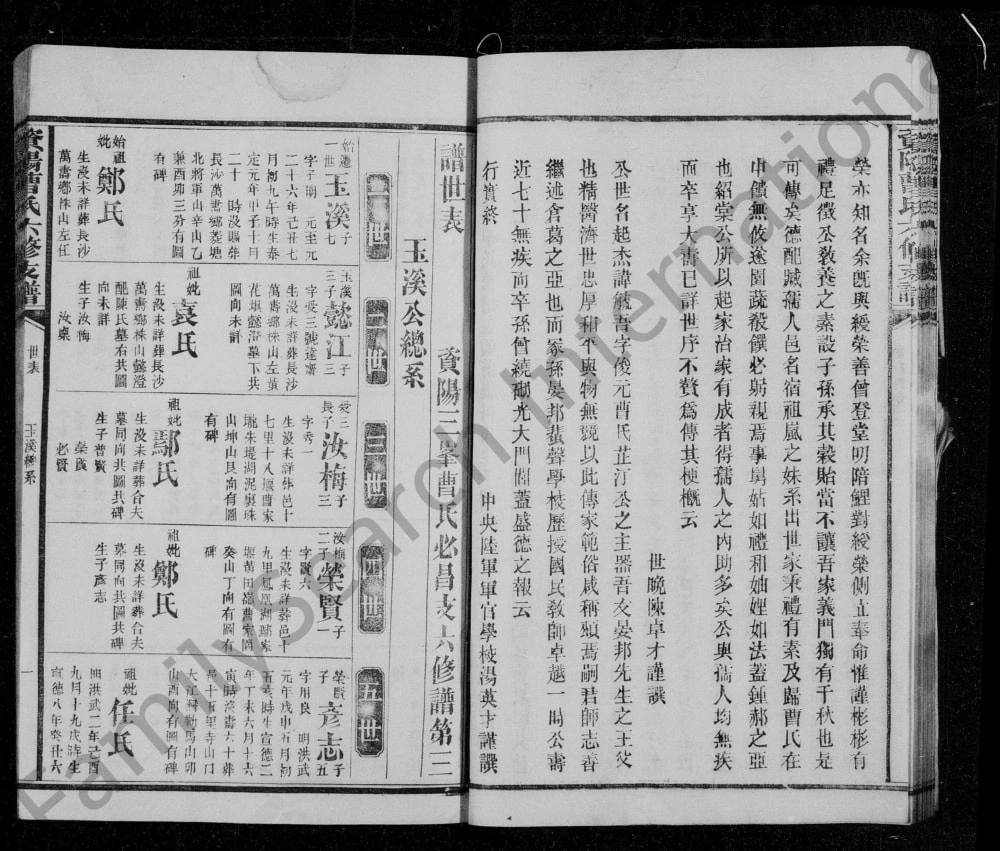 榮亦知名余旣與綬榮善曾登堂明陪鯉對綬榮側立奉命惟謹彬彬有
禮足徵公敎養之素設子孫承其穀貽當不讓吾家義門獨有千秋也是
可傳矣德配臧孺人邑名宿祖嵐之妹系出世家秉禮有素及歸曹氏在
中饋無攸遂園蔬殽饌必躬親焉事舅姑如禮和妯娌如法蓋鍾郝之亞
也紹棠公所以起家治家有成者得孺人之内助多矣公與孺人均無疾
而卒享大壽已詳世序不贅爲傳其梗槪云
世晩陳卓才謹譔
公世名起杰諱毓吾字俊元曹氏芷汀公之主器吾友晏邦先生之王父
也精醫濟世忠厚和平與物無競以此傳家範俗咸稱頌焉嗣君師志善
繼述倉葛之亞也而冢孫晏邦蜚聲學校歷授國民敎師卓越一時公壽
近七十無疾而卒孫曾繞砌光大門閭蓋盛德之報云
中央陸軍軍官學校湯英才謹譔
行實終
資陽三峯曹氏必昌支六修譜第三
譜世表
玉溪公總系
二世
三世
五世
始遷一世 玉溪 子七
字子明 元至元
二十六年己丑七
月初九午時生泰
定元年甲子十月
二十 時沒賜葬
長沙萬壽鄉菱塘
北將軍山辛山乙
兼酉卯三分有圖
有碑
始祖妣 鄭氏
生沒未詳葬長沙
萬壽鄉株山左任
玉溪三子 懿江 子三
字受三號達齋
生沒未詳葬長沙
萬壽鄉株山左黃
花塅懿浴墓下共
圖向未詳
祖妣 袁氏
生沒未詳葬長沙
萬壽鄉株山懿澄
配陳氏墓右共圖
向未詳
生子汝梅
汝槀
受三長子 汝梅 子三
字秀一
生沒未詳葬邑十
七里十八堰曹家
壠朱堤湖泥裹珠
山坤山艮向有圖
有碑
祖妣 鄢氏
生沒未詳葬合夫
墓同向共圖共碑
生子普賢
榮賢
必賢
汝梅二子 榮賢 子一
字賢六
生沒未詳葬邑十
九甲鳳凰湖鄢家
堰黃田嵓曹家園
癸山丁向有圖有
碑
祖妣 鄭氏
生沒未詳葬合夫
墓同向共圖共碑
生子彥志
榮賢子 彥志 子五
字用良 明洪武
元年戊申五月初
五亥時生宣德二
年丁未六月十六
寅時沒壽六十葬
邑十五里寺山口
山酉向有圖有碑
祖妣 任氏
明洪武二年己酉
九月十九戌時生
宣德八年癸丑六
資陽曹氏六修支譜
世表
玉溪總系
一
資陽曹氏六修支譜
FamilySearch International